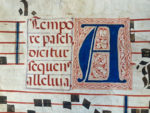 Tempo
re pasch
dicitur
sequens
alleluia.
A